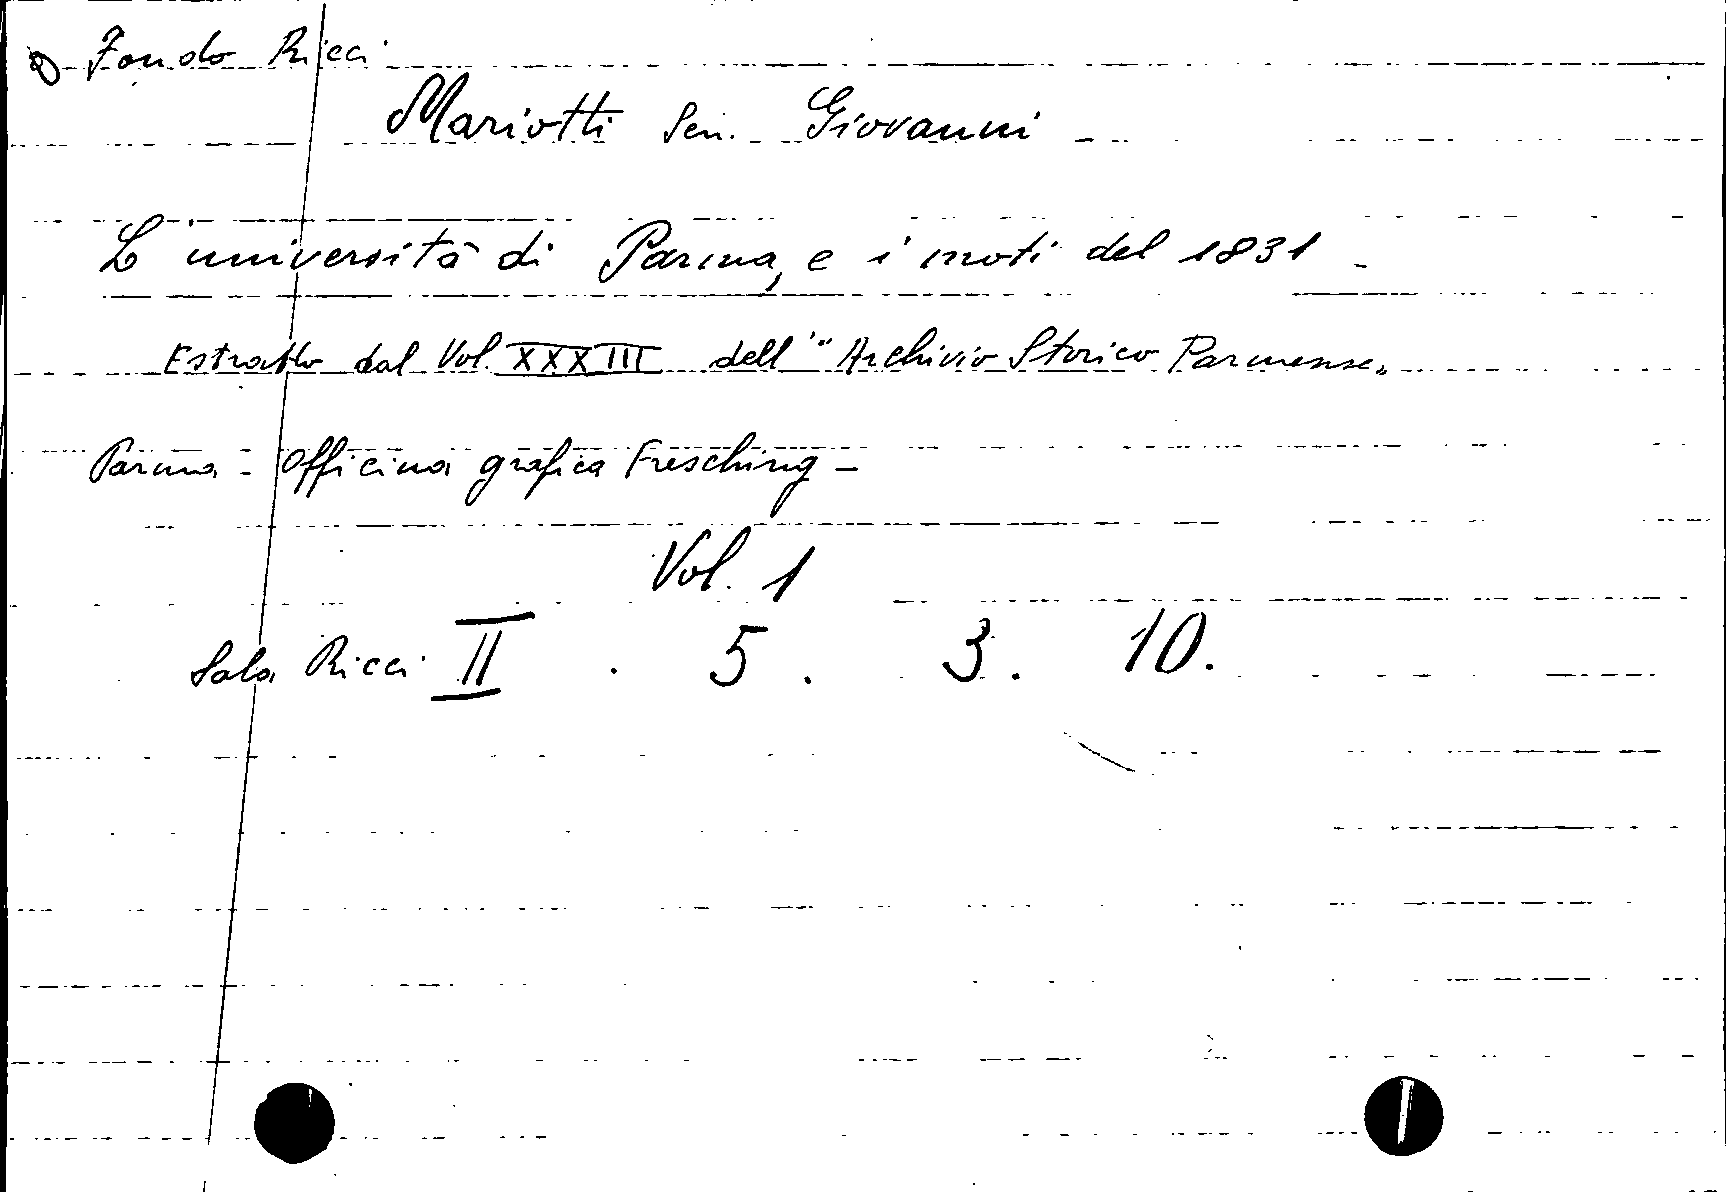 Fondo Ricci
Mariotti Sen. Giovanni -
L'università di Parma, e i moti del 1831 -
Estratto dal Vol. XXXIII dell'"Archivio Storico Parmense"
Parma - Officina grafica Fresching -
Vol. 1
Sala Ricci II . 5 . 3 . 10.